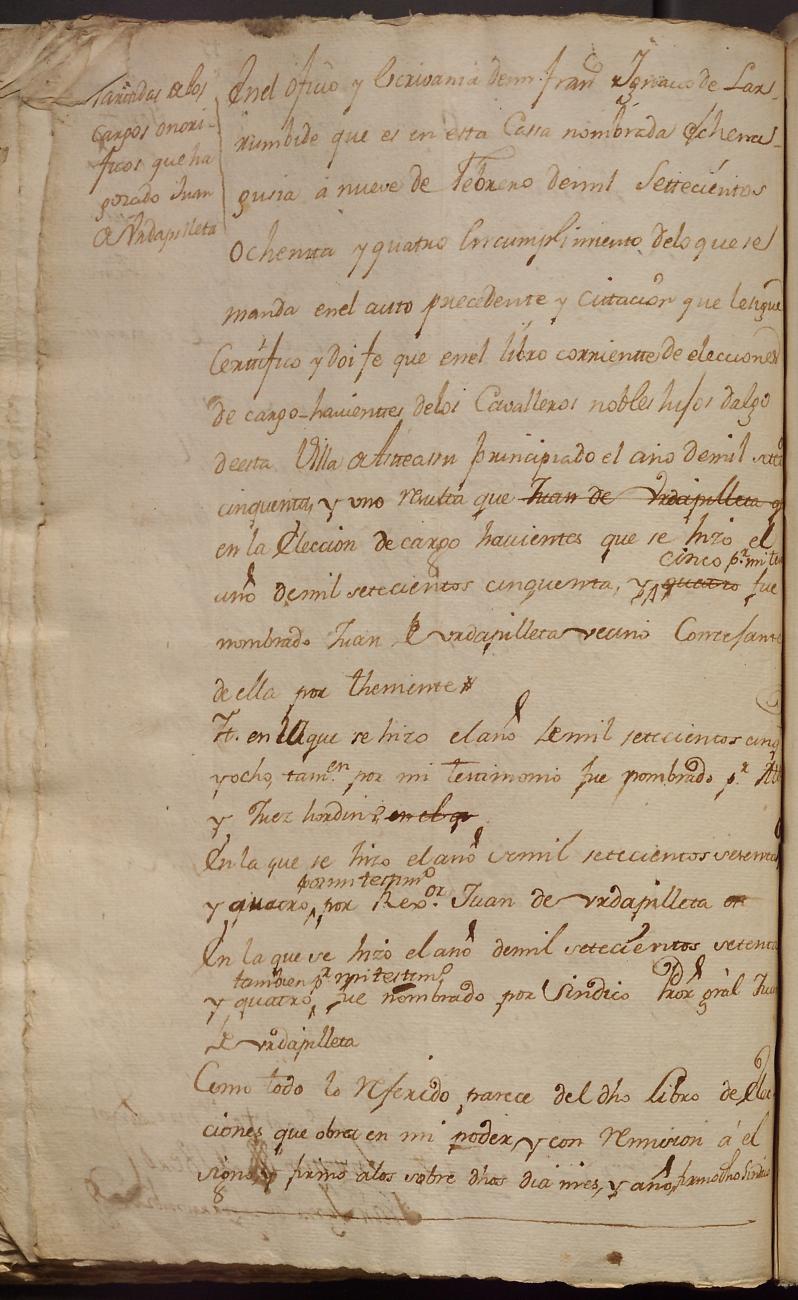 a los
Cargos onori-
ficos que ha
gozado Juan
de Urdapilleta
En el oficio y Escrivania de mi Franco Ignacio de Lar-
rumbide que es en esta Cassa nombrada Echenas-
gusia á nueve de Febrero de mil Settecientos
Ochenta y quatro En cumplimiento delo que se
manda en el auto precedente y Cittacion que le sigue
Certtifico y doi fe que en el libro corriente de elecciones
de cargo-havientes delos Cavalleros nobles hijos dalgo
de esta Villa de Asteasu principiado el año de mil sete
cinquenta, y uno resulta que Juan de Urdapilleta
en la Eleccion de cargo havientes que se hizo el
cinco pr. mi tes
año de mil setecientos cinquenta, y quatro fue
nombrado Juan de Urdapilleta vecino Concejante
de ella por theniente
It. en la que se hizo el año de mil setecientos cinq
y ocho, tamen por mi testimonio fue nombrado pr. Alc
y Juez hordino en el qe
En la que se hizo el año de mil setecientos setenta
por mi testimo
y quatro, por Rexor. Juan de Urdapilleta en
En la que se hizo el año de mil setecientos setenta
tambien pr. mi testimo
y quatro, fue nombrado por Sindico Pror. gral Juan
de Urdapilleta
Como todo lo referido parece del dho libro de Elec
ciones que obra en mi poder, y con remision á él
signo y firmo a los sobre dhos dia mes, y año, firmo dho Sindico